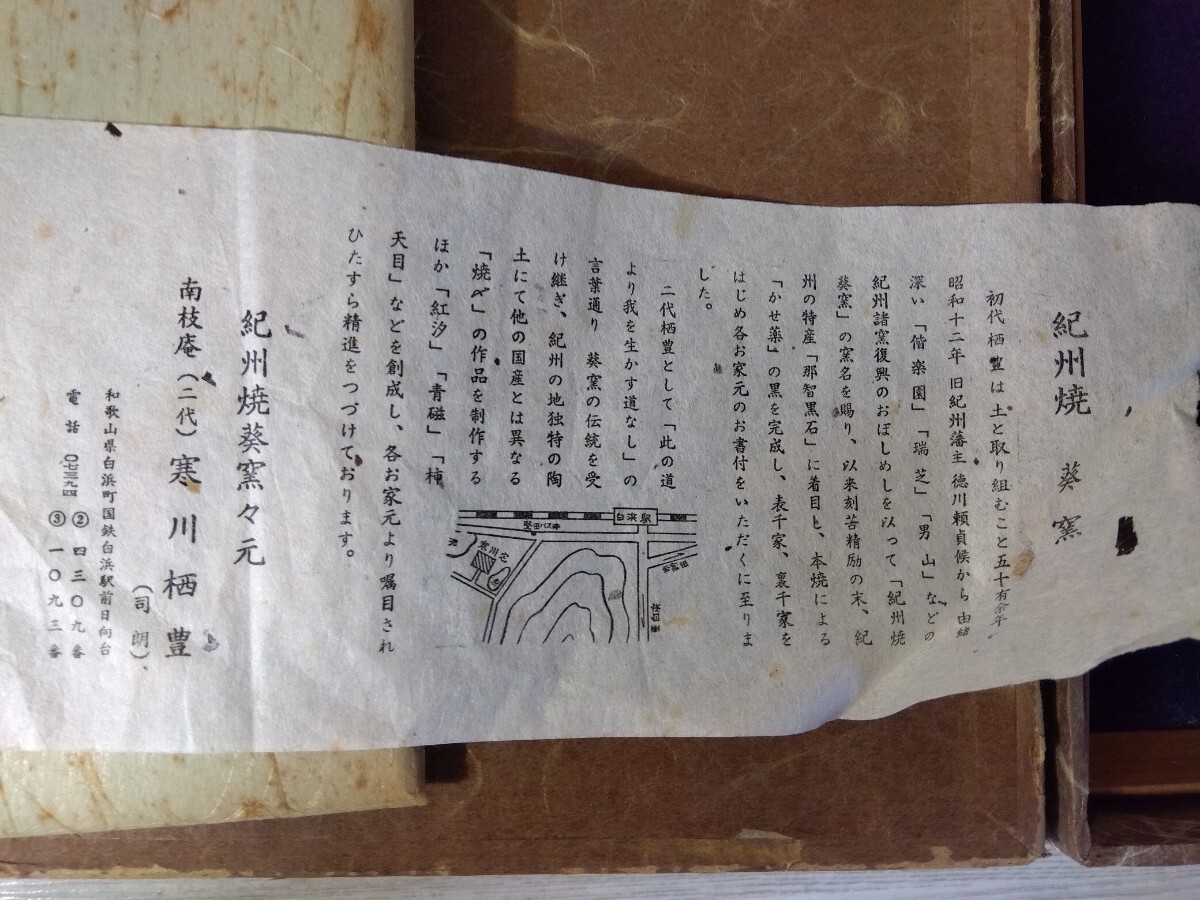 紀州焼 葵窯
初代栖豊は土と取り組むこと五十有余年
昭和十二年 旧紀州藩主 徳川頼貞候から 由緒
深い「偕楽園」「瑞芝」「男山」などの
紀州諸窯復興のおぼしめしを以って「紀州焼
葵窯」の窯名を賜り、以来刻苦精励の末、紀
州の特産「那智黒石」に着目し、本焼による
「かせ薬」の黒を完成し、表千家、裏千家を
はじめ各お家元のお書付をいただくに至りま
した。
二代栖豊として「此の道
より我を生かす道なし」の
言葉通り 葵窯の伝統を受
け継ぎ、紀州の地独特の陶
土にて他の国産とは異なる
「焼〆」の作品を制作する
ほか「紅汐」「青磁」「柿
天目」などを創成し、各お家元より嘱目され
ひたすら精進をつづけております。
白浜駅
堅田バス停
寒川宅
至白浜
紀州焼葵窯々元
南枝庵(二代)寒川栖豊
(司朗)
和歌山県白浜町国鉄白浜駅前日向台
電話 〇七三九四 ②四三〇九番
③一〇九三番